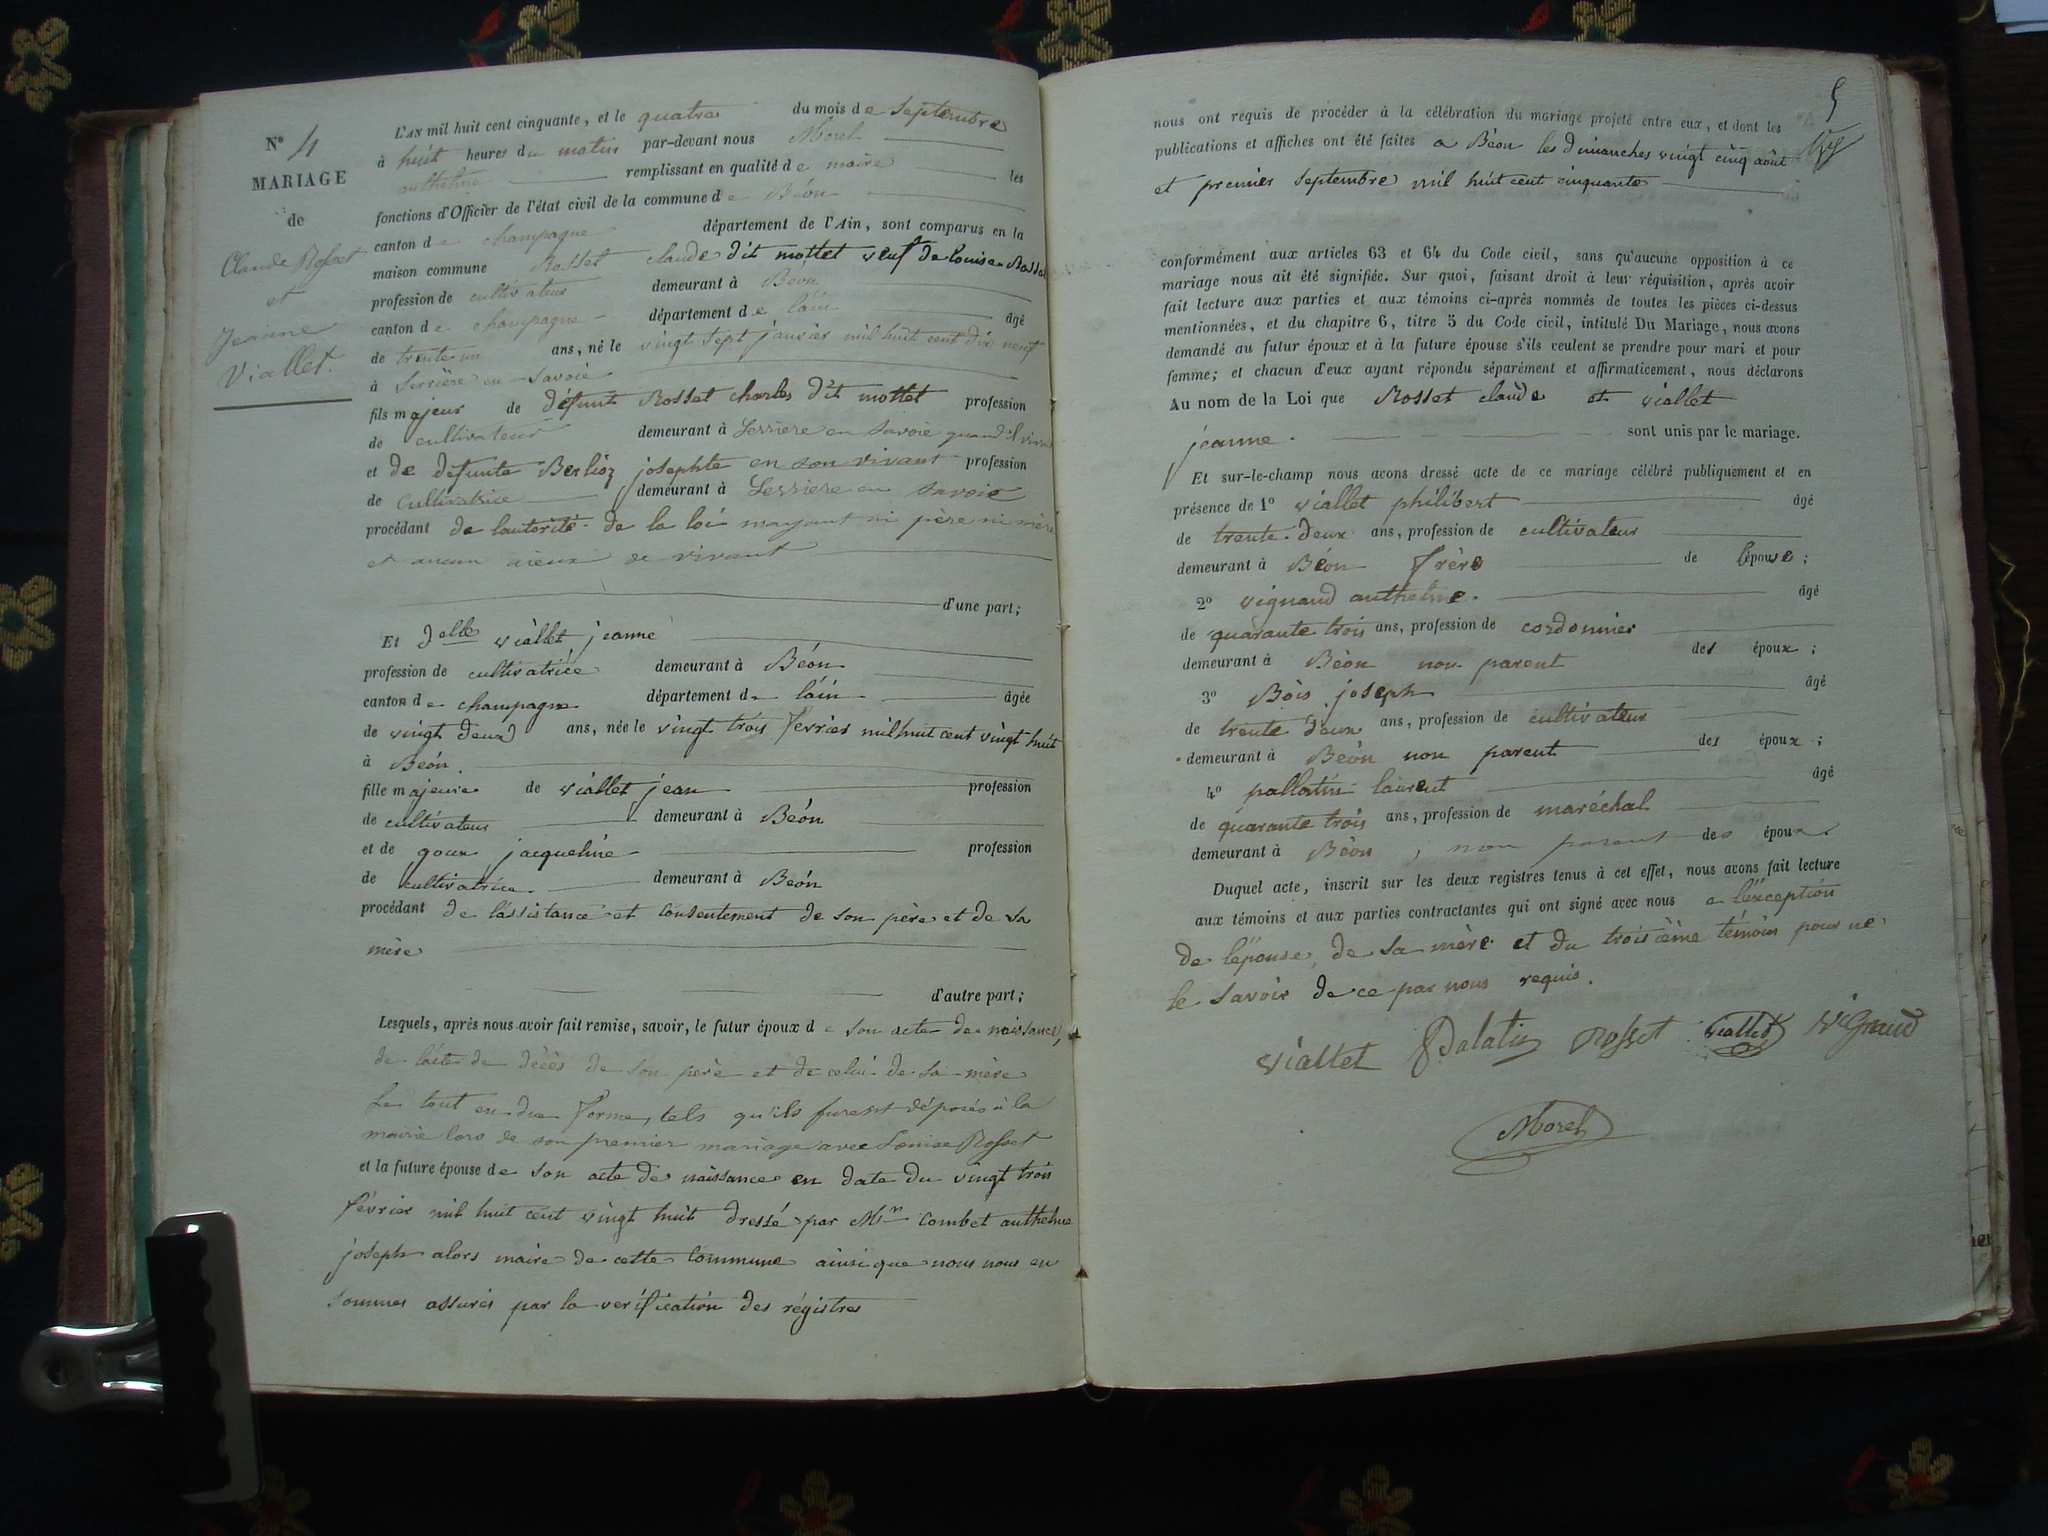 N° 4
MARIAGE
de
Claude Rosset
et
Jeanne
Viallet.
L'AN mil huit cent cinquante, et le quatre du mois de septembre
à huit heures du matin par-devant nous Morel
anthelme remplissant en qualité de maire les
fonctions d'Officier de l'état civil de la commune de Béon
canton de champagne département de l'Ain, sont comparus en la
maison commune Rosset claude dit mottet veuf de louise Rosset
profession de cultivateur demeurant à Béon
canton de champagne département de láin âgé
de trente un ans, né le vingt sept janvier mil huit cent dix neuf
à Serrière en Savoie
fils majeur de défunt Rosset charles dit mottet profession
de cultivateur demeurant à Serriere en Savoie quand il vivait
et de défunte Berlioz josephte en son vivant profession
de cultivatrice demeurant à Serriere en Savoie
procédant de lautorité de la loi nayant ni père ni mère
et aucun aieux de vivant
d'une part;
Et delle viallet jeanne
profession de cultivatrice demeurant à Béon
canton de champagne département de láin âgée
de vingt deux ans, née le vingt trois fevrier mil huit cent vingt huit
à Béon.
fille majeure de viallet jean profession
de cultivateur demeurant à Béon
et de goux jacqueline profession
de cultivatrice. demeurant à Béon
procédant de lássistance et consentement de son père et de sa
mère
d'autre part;
Lesquels, après nous avoir fait remise, savoir, le futur époux de son acte de naissance,
de lácte de décès de son père et de celui de sa mère
Le tout en due forme, tels qu'ils furent déposés à la
mairie lors de son premier mariage avec Louise Rosset
et la future épouse de son acte de naissance en date du vingt trois
février mil huit cent vingt huit dressé par Mr combet anthelme
joseph alors maire de cette commune ainsi que nous nous en
sommes assurés par la verification des régistres
5
nous ont requis de procéder à la célébration du mariage projeté entre eux, et dont les
publications et affiches ont été faites a Béon les dimanches vingt cinq août
et premier septembre mil huit cent cinquante
conformément aux articles 63 et 64 du Code civil, sans qu'aucune opposition à ce
mariage nous ait été signifiée. Sur quoi, faisant droit à leur réquisition, après avoir
fait lecture aux parties et aux témoins ci-après nommés de toutes les pièces ci-dessus
mentionnées, et du chapitre 6, titre 5 du Code civil, intitulé Du Mariage, nous avons
demandé au futur époux et à la future épouse s'ils veulent se prendre pour mari et pour
femme; et chacun d'eux ayant répondu séparément et affirmaticement, nous déclarons
Au nom de la Loi que Rosset claude et viallet
jeanne. sont unis par le mariage.
Et sur-le-champ nous avons dressé acte de ce mariage célébré publiquement et en
présence de 1° viallet philibert âgé
de trente deux ans, profession de cultivateur
demeurant à Béon frère de lépouse;
2° vignand anthelme. âgé
de quarante trois ans, profession de cordonnier
demeurant à Béon non parent des époux;
3° Bois joseph âgé
de trente deux ans, profession de cultivateur
demeurant à Béon non parent des époux;
4° pallatin laurent âgé
de quarante trois ans, profession de maréchal
demeurant à Béon, non parent des époux.
Duquel acte, inscrit sur les deux registres tenus à cet effet, nous avons fait lecture
aux témoins et aux parties contractantes qui ont signé avec nous a léxception
de lépouse, de sa mère et du troisième témoin pour ne
le savoir de ce par nous requis.
viallet Palatin Rosset viallet Vignaud
Morel